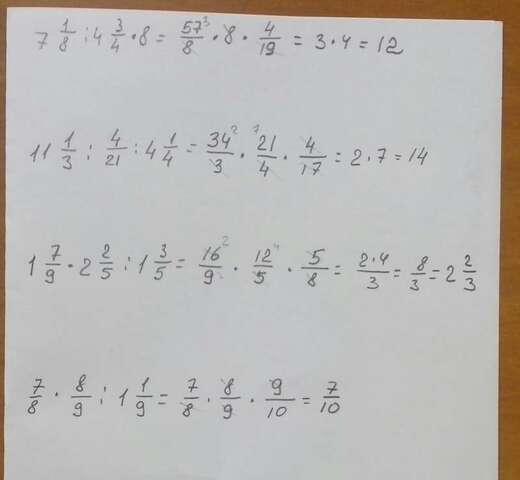 7 1/8 : 4 3/4 · 8 = 57³/8 · 8 · 4/19 = 3 · 4 = 12
11 1/3 : 4/21 : 4 1/4 = 34²/3 · ⁷21/4 · 4/17 = 2 · 7 = 14
1 7/9 · 2 2/5 : 1 3/5 = 16²/9 · 12⁴/5 · 5/8 = 2·4/3 = 8/3 = 2 2/3
7/8 · 8/9 : 1 1/9 = 7/8 · 8/9 · 9/10 = 7/10